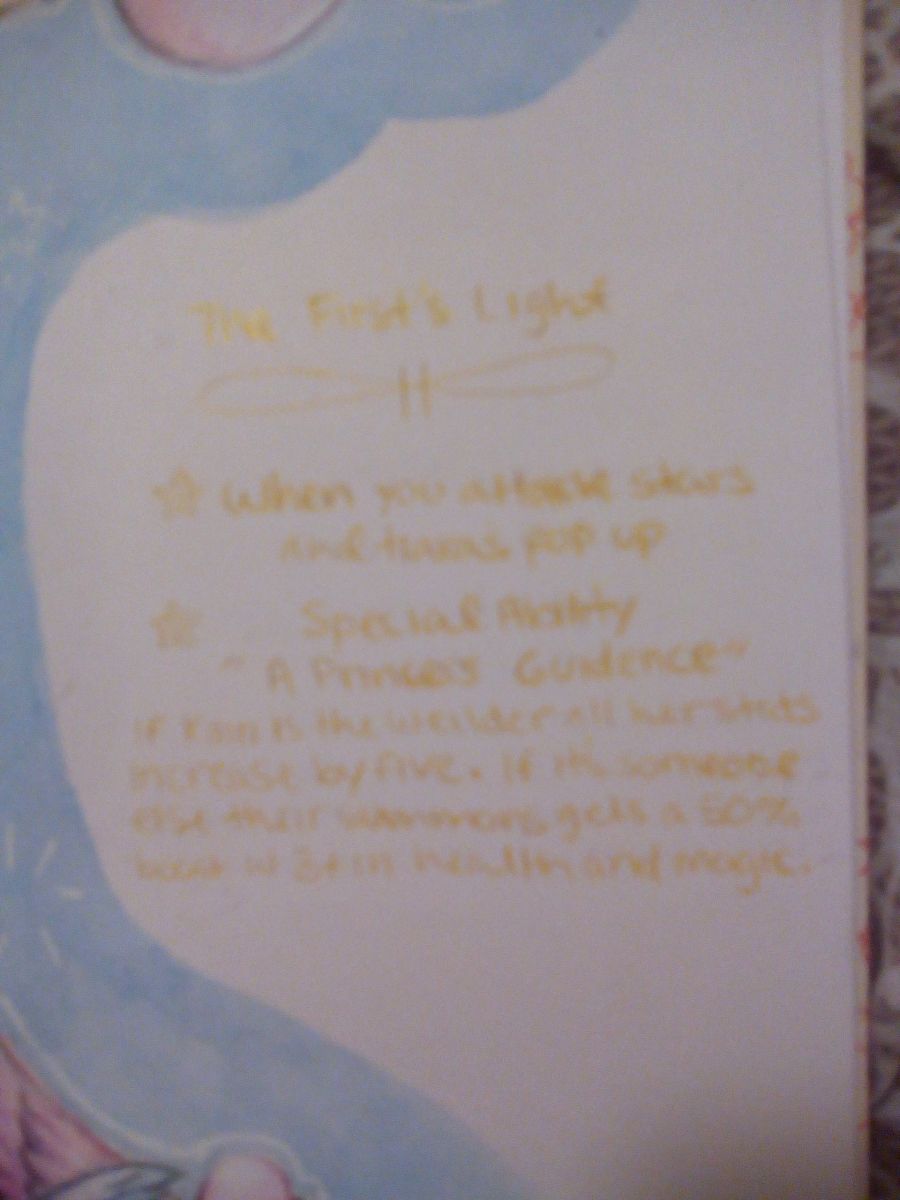 The First's Light
When you attack stars
and pop up
Special Ability
"A Princess Guidence"
If is the weilder all her stats
increase by five. If it's someone
else their summons gets a 50%
boost in health and magic.